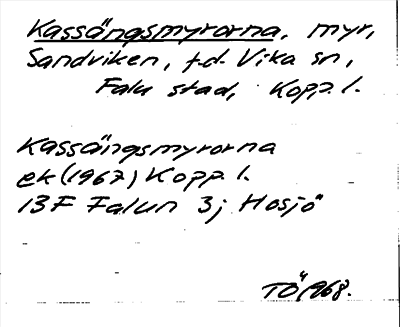 Kassängsmyrorna, myr,
Sandviken, f.d. Vika sn,
Falu stad, Kopp. l.
Kassängsmyrorna
ek (1967) Kopp. l.
13F Falun 3j Hosjö
TÖ 1968.